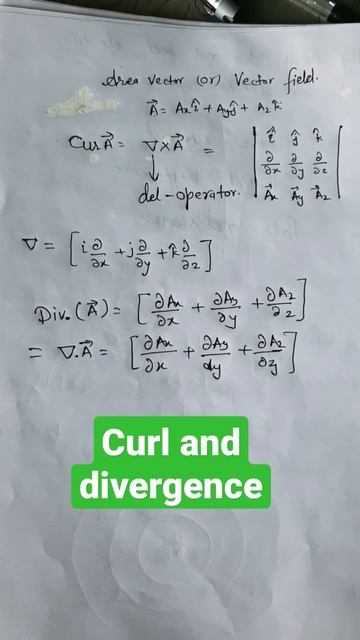 Area vector (or) Vector field.
A⃗ = Axî + Ayĵ + Azk̂
Curl A⃗ = ∇×A⃗ = | î ĵ k̂ |
| ∂/∂x ∂/∂y ∂/∂z |
del-operator. | A⃗x A⃗y A⃗z |
∇ = [i ∂/∂x + j ∂/∂y + k̂ ∂/∂z]
Div.(A⃗) = [∂Ax/∂x + ∂Ay/∂y + ∂Az/∂z]
= ∇.A⃗ = [∂Ax/∂x + ∂Ay/dy + ∂Az/∂z]
Curl and
divergence